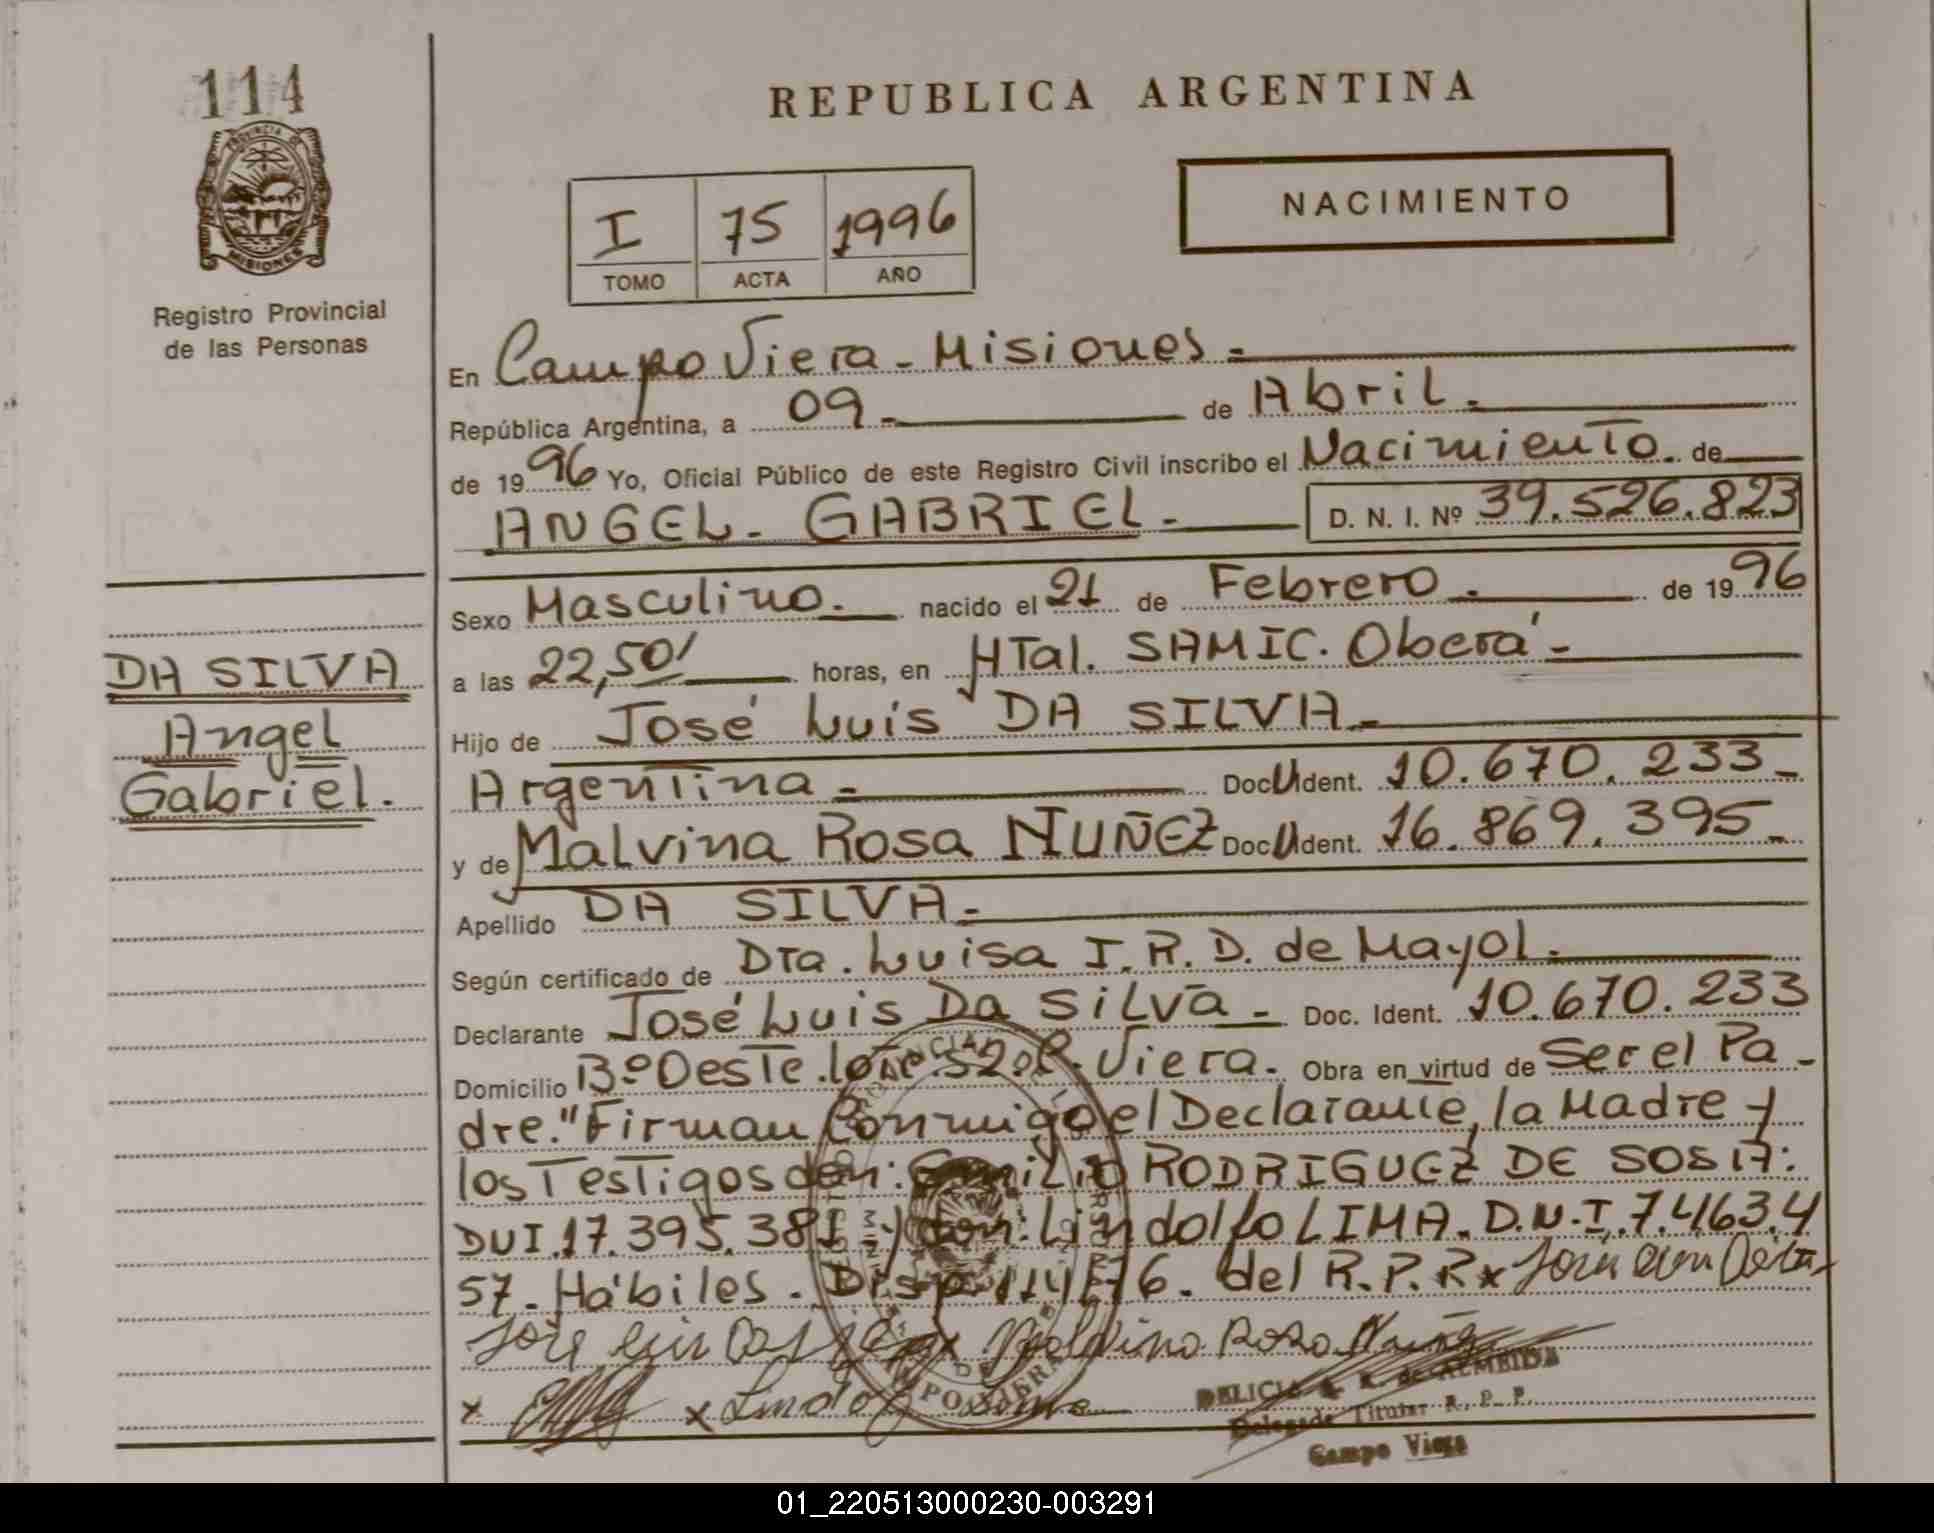 114
PROVINCIA DE
MISIONES
Registro Provincial
de las Personas
DA SILVA
Angel
Gabriel.
REPUBLICA ARGENTINA
I 75 1996
TOMO ACTA AÑO
NACIMIENTO
En Campo Viera - Misiones -
República Argentina, a 09 - de Abril.
de 1996 Yo, Oficial Público de este Registro Civil inscribo el Nacimiento. de
ANGEL - GABRIEL - D. N. I. Nº 39.526.823
Sexo Masculino. nacido el 21 de Febrero - de 1996
a las 22,50' horas, en HTal. SAMIC. Oberá -
Hijo de José Luis DA SILVA -
Argentina - Doc U Ident. 10.670.233 -
y de Malvina Rosa NUÑEZ Doc U Ident. 16.869.395 -
Apellido DA SILVA -
Según certificado de Dra. Luisa I. R. D. de Mayol.
Declarante José Luis Da Silva - Doc. Ident. 10.670.233
Domicilio Bº Oeste. lote 52. C. Viera. Obra en virtud de Ser el Pa -
dre." Firman Conmigo el Declarante, la Madre y
los Testigos don: Emilio RODRIGUEZ DE SOSA:
DUI. 17.395.381 - y don: Lindolfo LIMA. D.N.I. 7.463.4
57 - Hábiles. Disp. 114/76. del R.P.P. x
x Malvina Rosa Nuñez
x x Lindolfo Lima
DELICIA de ALMEIDA
Delegada Titular R. P. P.
Campo Viera
01_220513000230-003291